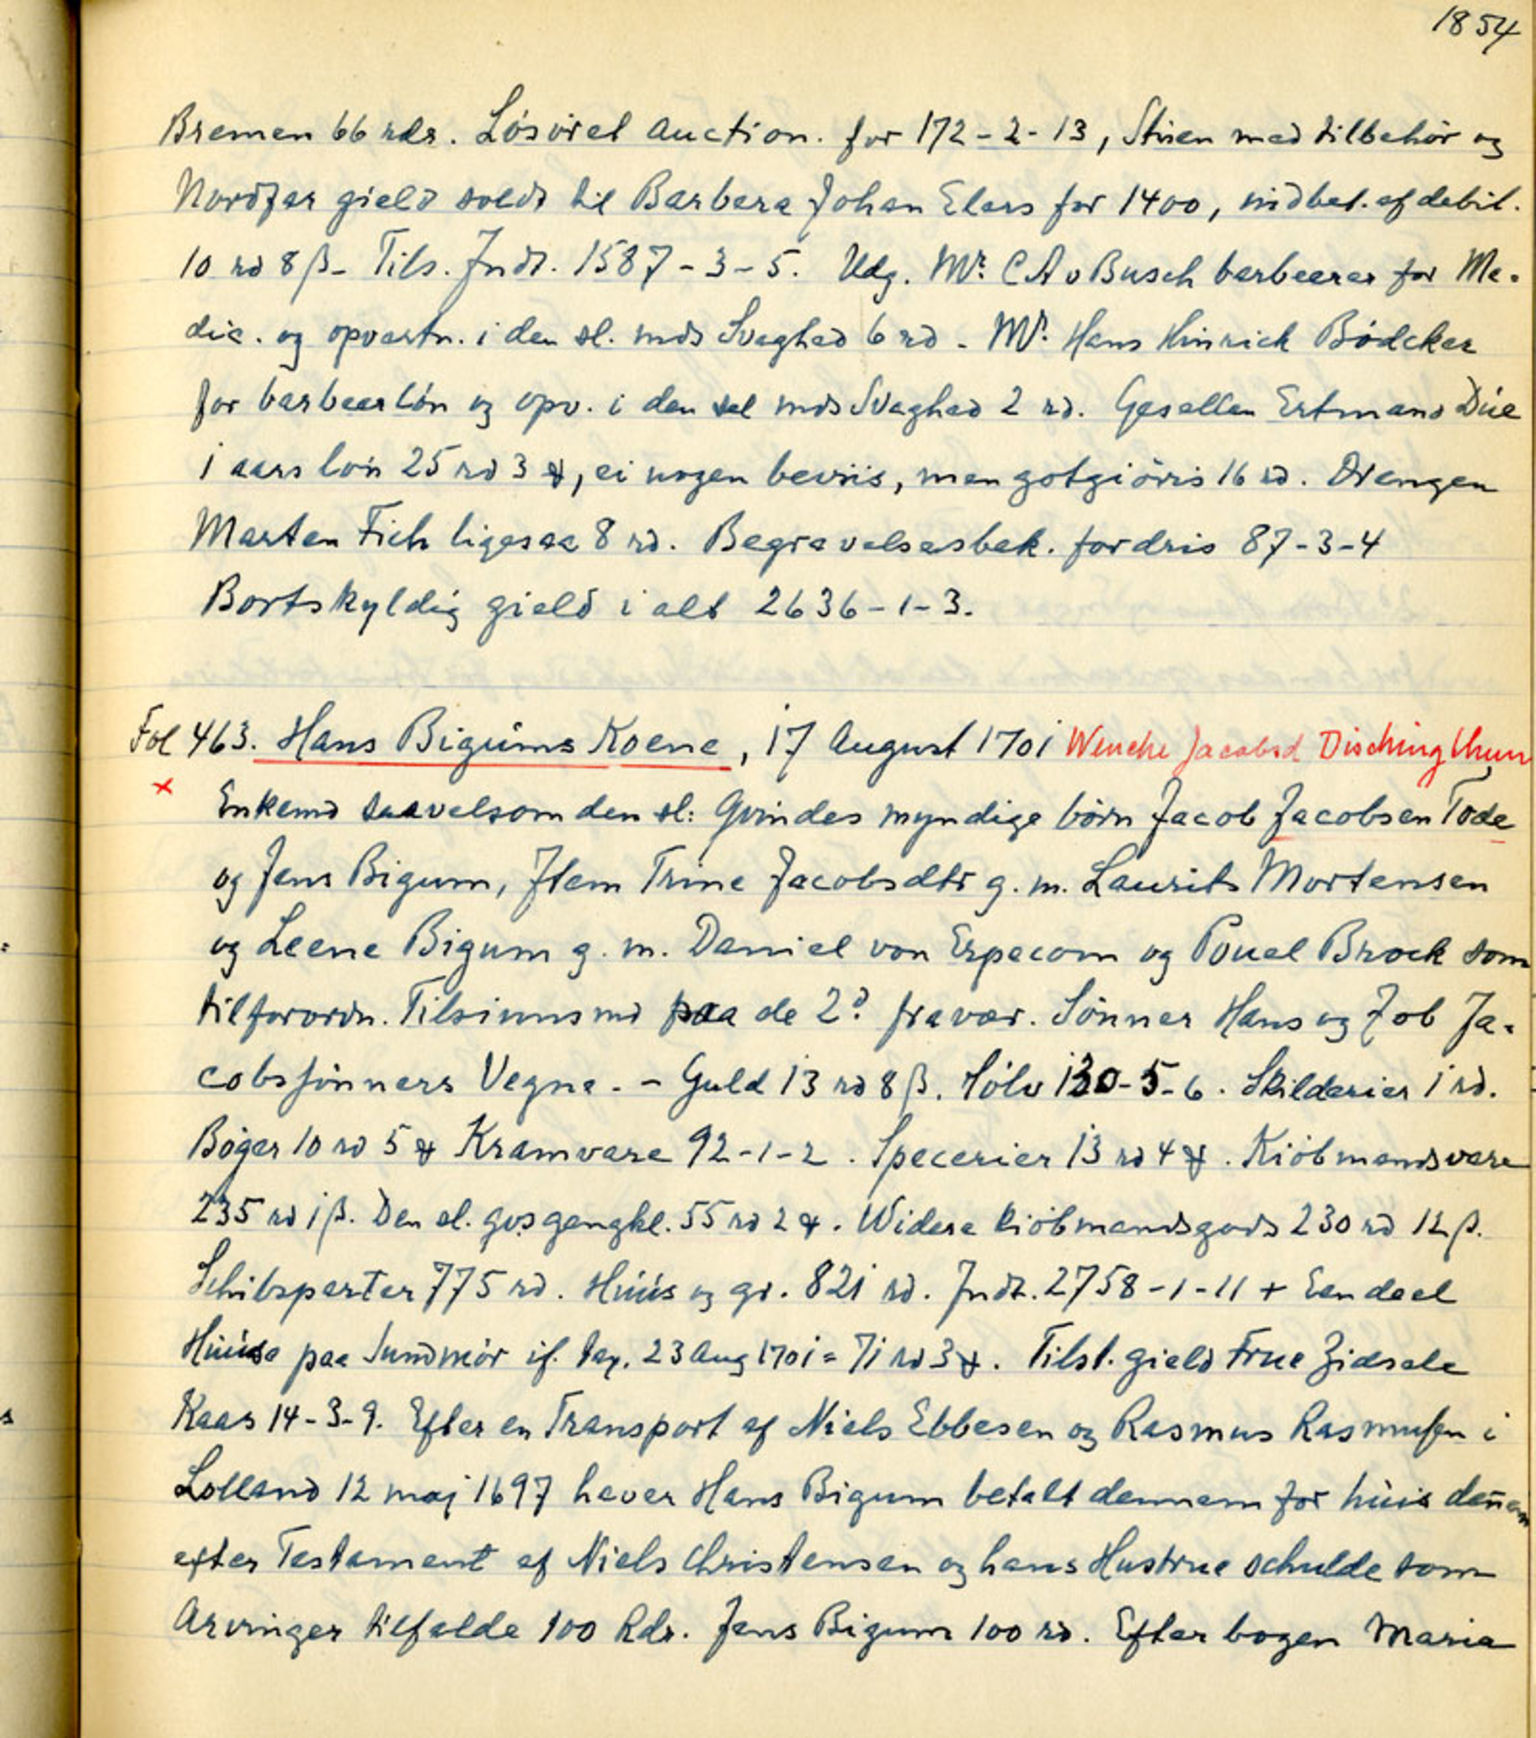 1854
Bremen 66 rdr. Lösöret Auction. for 172-2-13, Stuen med tilbehör og
Nordfar gield soldt til Barbera Johan Elers for 1400, indbet. af debit.
10 rd 8 β - Tils. Indt. 1587-3-5. Udg. Mr. C A v Busch barbeerer for Me-
dic. og opvartn. i den sl. mds Svaghed 6 rd - Mr. Hans Hinrich Bödcker
for barbeerlön og opv. i den sel mds Svaghed 2 rd. Gesellen Ertmand Düe
i aars lön 25 rd 3 ꝟ, ei nogen beviis, men gotgiöris 16 rd. Drengen
Morten Fich ligesaa 8 rd. Begravelsesbek. fordris 87-3-4
Bortskyldig gield i alt 2636-1-3.
Fol 463. Hans Bigums Koene, 17 August 1701 Wenche Jacobsd Disching
Enkemd saavelsom den sl: Qvindes myndige börn Jacob Jacobsen Tode
og Jens Bigum, Item Trine Jacobsdtr g. m. Laurits Mortensen
og Leene Bigum g. m. Daniel von Erpecom og Pouel Brock som
tilforordn. Tilsiunsmd paa de 2de fravær. Sönner Hans og Job Ja-
cobsönners Vegne. - Guld 13 rd 8 β. Sölv 130-5-6. Skilderier 1 rd.
Böger 10 rd 5 ꝟ Kramvare 92-1-2. Specerier 13 rd 4 ꝟ. Kiöbmandsvare
235 rd 1 β. Den sl. qvs gangkl. 55 rd 2 ꝟ. Widere kiöbmandsgods 230 rd 12 β.
Schibsparter 775 rd. Huus og gr. 821 rd. Indt. 2758-1-11 + Een deel
Huuse paa Sundmör if. tax. 23 Aug 1701 = 71 rd 3 ꝟ. Tilst. gield Frue Zidsele
Kaas 14-3-9. Efter en Transport af Niels Ebbesen og Rasmus Rasmussen i
Lolland 12 maj 1697 haver Hans Bigum betalt dennem for huis denem
efter Testament af Niels Christensen og hans Hustrue schulde som
Arvinger tilfalde 100 Rdr. Jens Bigum 100 rd. Efter bogen Maria